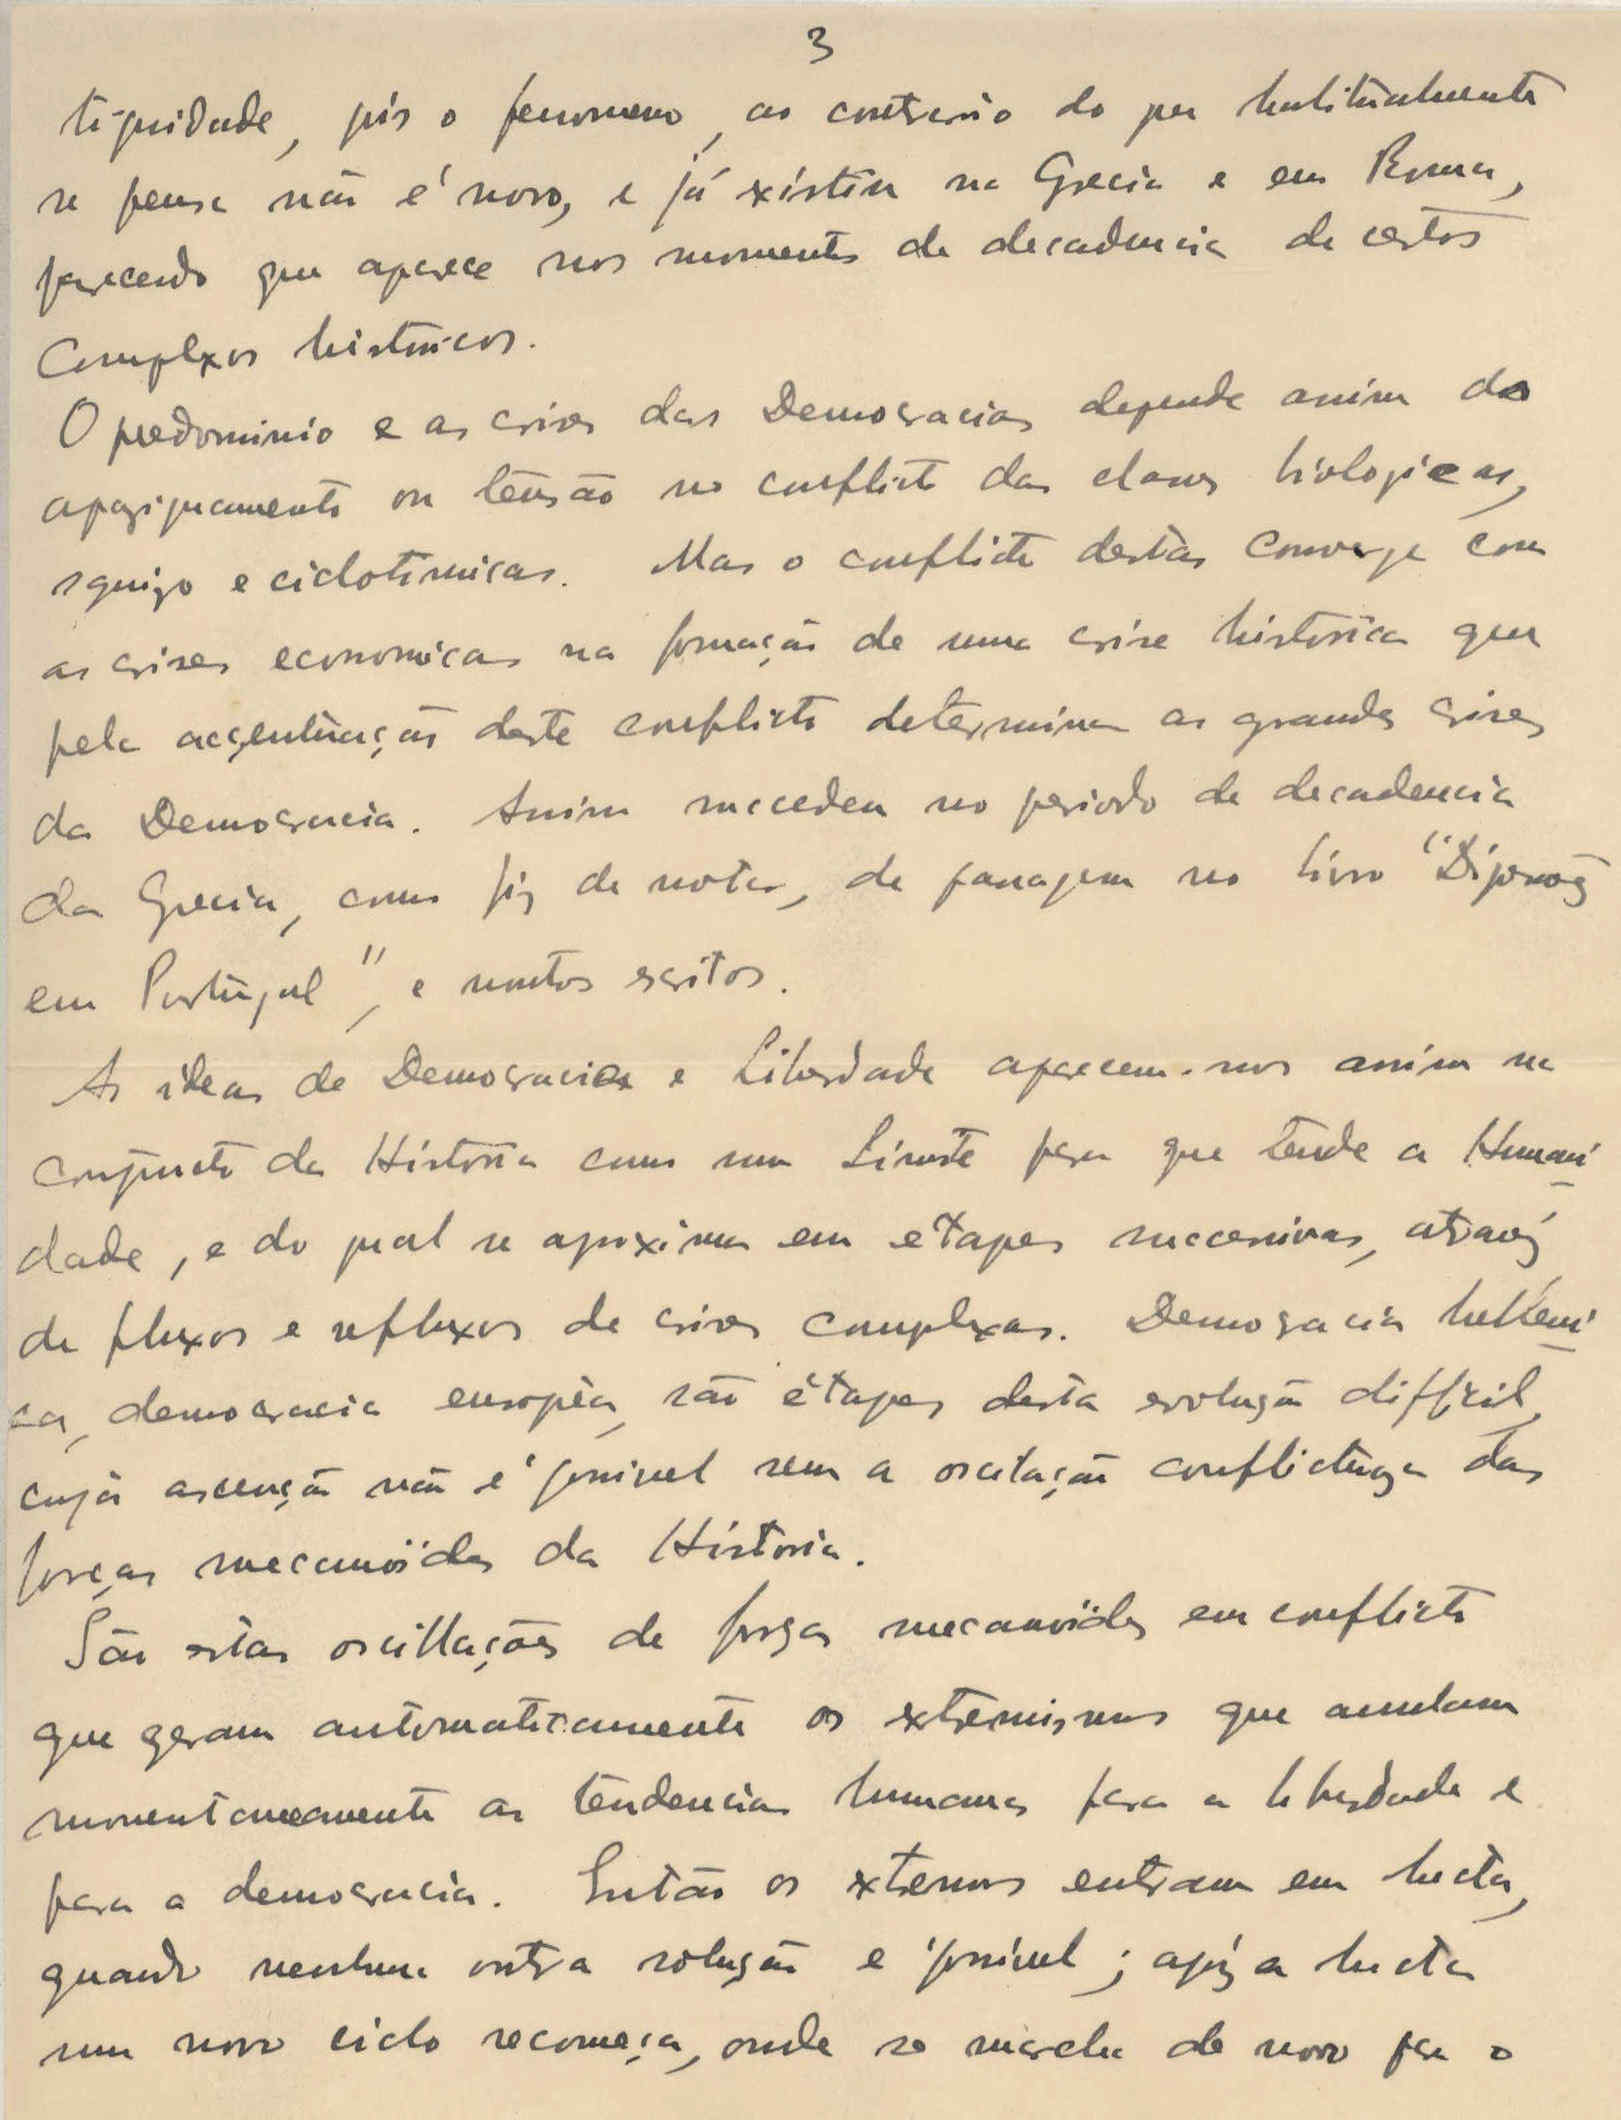 3
tiguidade, pois o fenomeno, ao contrario do que habitualmente
se pensa não é novo, e já existiu na Grecia e em Roma,
parecendo que aparece nos momentos de decadencia de certos
Complexos historicos.
O predominio e as crises das Democracias depende assim do
apaziguamento ou tensão no conflicto das classes biologicas,
squizo e ciclotimicas. Mas o conflicto destas converge com
as crises economicas na formação de uma crise historica que
pela accentuação deste conflicto determina as grandes crises
da Democracia. Assim succedeu no periodo de decadencia
da Grecia, como fiz de notar, de passagem no livro "
em Portugal", e noutos escritos.
As ideas de Democracia e Liberdade aparecem-nos assim no
conjuncto da Historia como um Limite para que tende a Humani
dade, e do qual se aproxima em etapes successivas, através
de fluxos e refluxos de crises complexas. Democracia helleni
ca, democracia europêa, são étapes desta evolução difficil,
cuja ascenção não é possivel sem a oscilação conflictuosa das
forças mecanoïdes da Historia.
São estas oscillações de forças mecanoïdes em conflicto
que geram automaticamente os extremismos que anulam
momentaneamente as tendencias humanas para a liberdade e
para a democracia. Então os extremos entram em lucta,
quando nenhuma outra solução é possivel; após a lucta
um novo ciclo recomeça, onde se marcha de novo para o